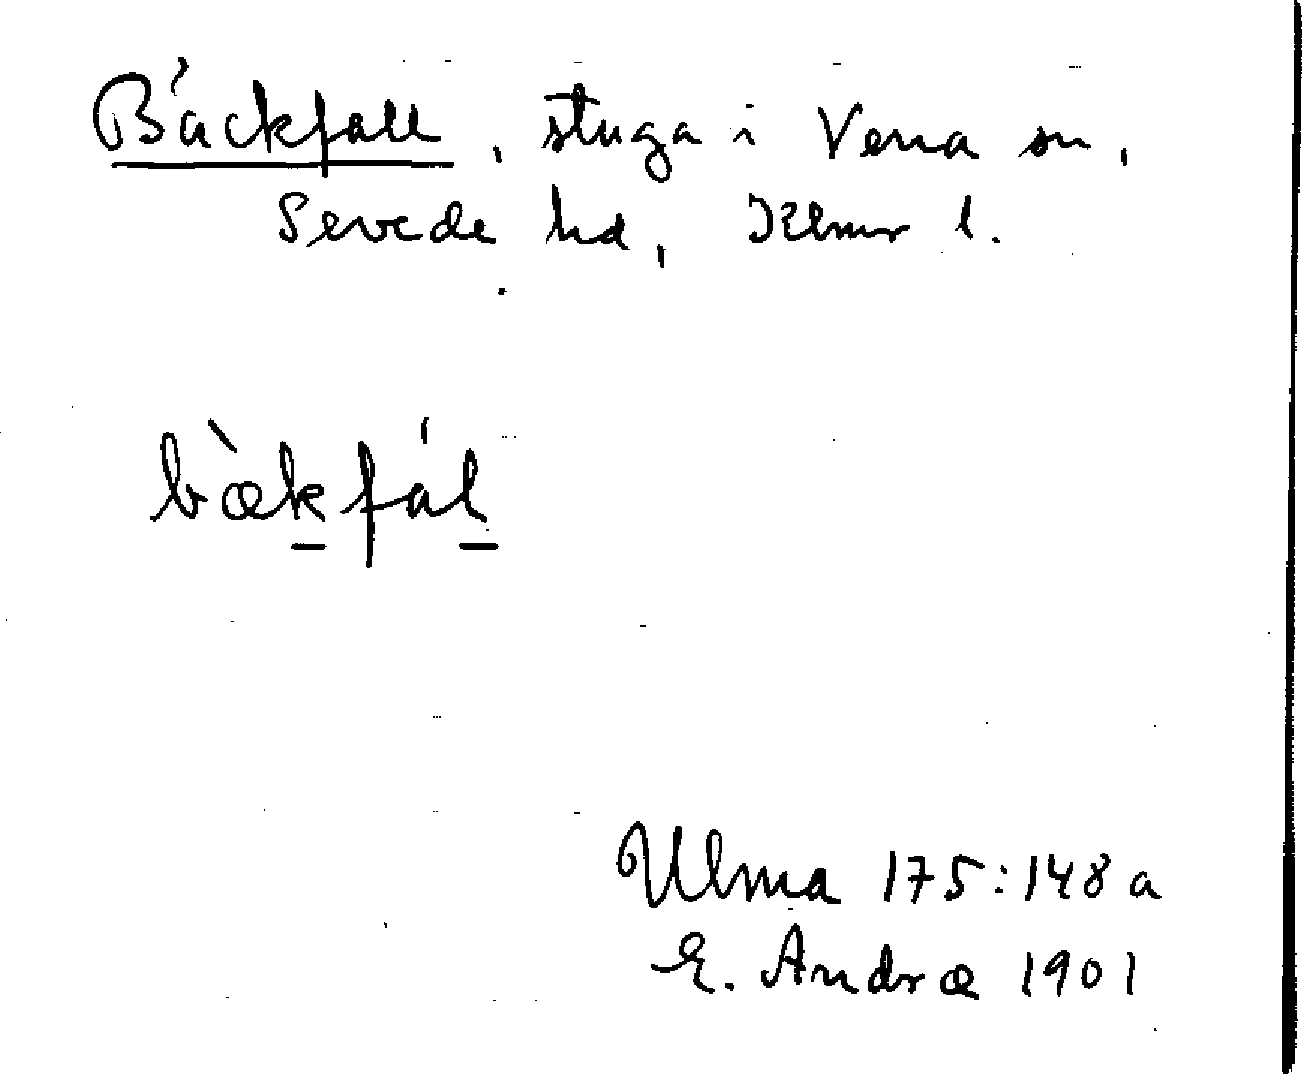 Bäckfall, stuga i Vena sn,
Sevede hd, Klmr l.
bæ̀kfál
Ulma 175:148 a
E. Andræ 1901